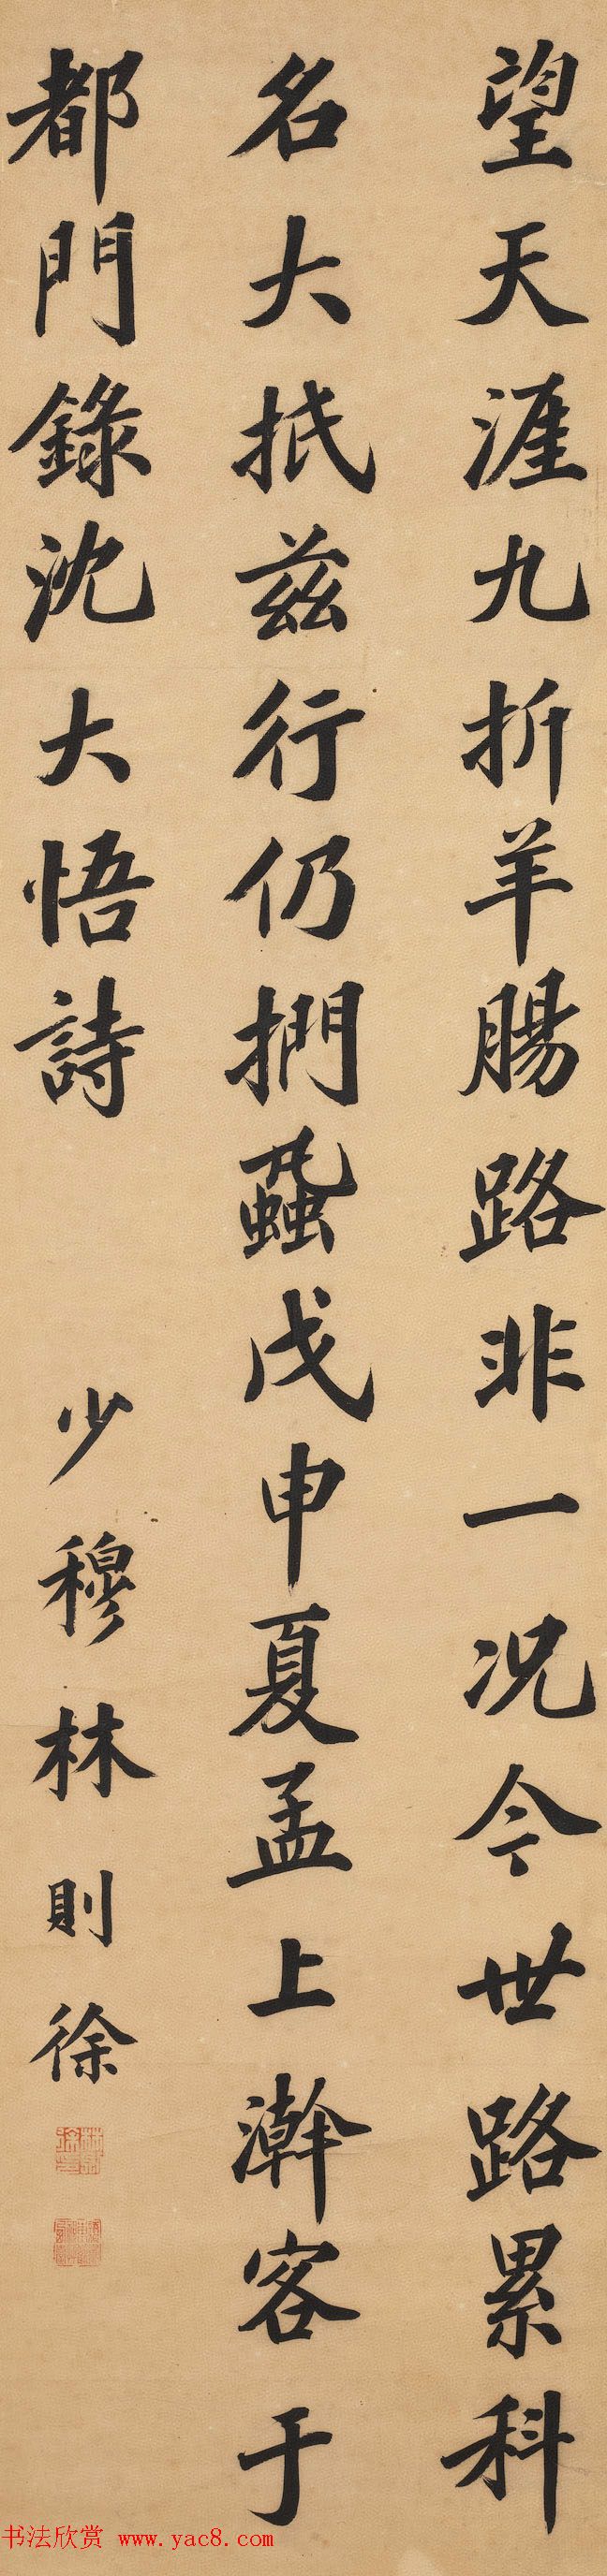 望天涯九折羊腸路非一況今世路累科
名大抵兹行仍捫蝨戊申夏孟上澣客于
都門錄沈大悟詩 少穆林則徐
书法欣赏 www.yac8.com